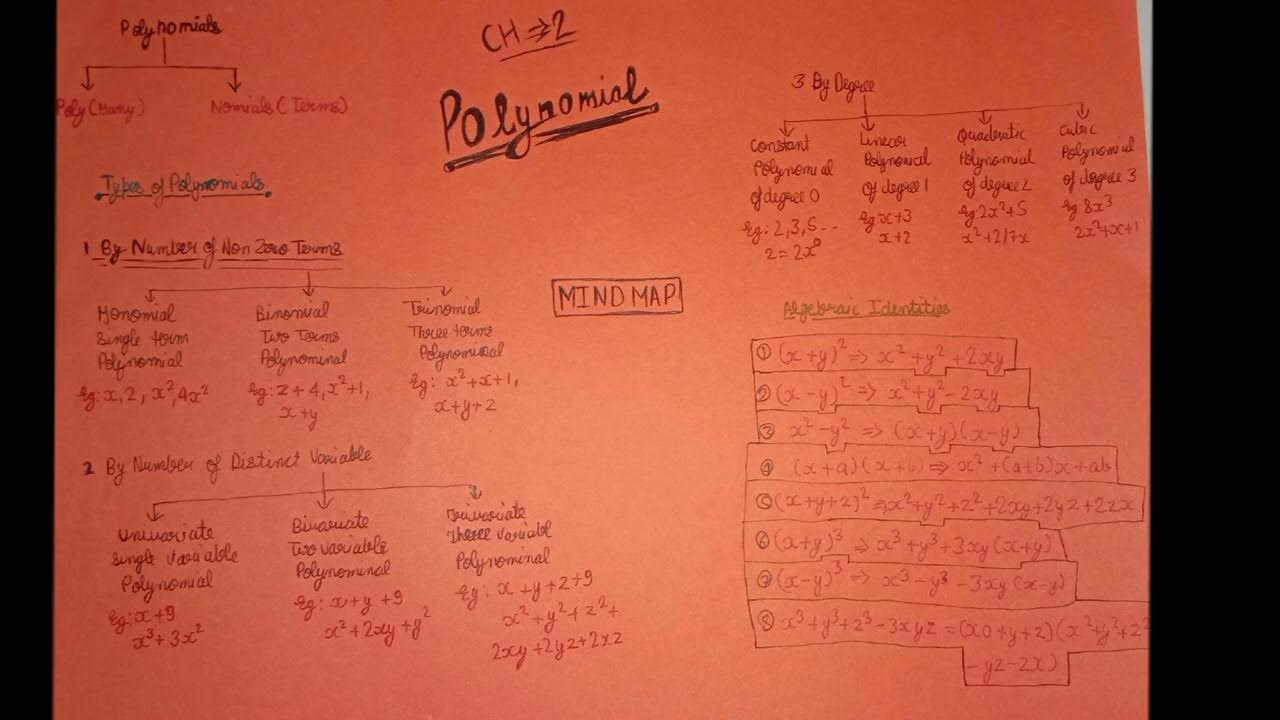 Polynomials
Poly (Many)
Nomials (Terms)
CH ⇒ 2
Polynomial
Types of Polynomials
1 By Number of Non Zero Terms
Monomial
Single term
Polynomial
Eg: x, 2, x², 4x²
Binomial
Two Terms
Polynominal
Eg: z + 4, x²+1,
x+y
Trinomial
Three terms
Polynominal
Eg: x²+x+1,
x+y+z
2 By Number of Distinct Variable
Univariate
Single Variable
Polynomial
Eg: x+9
x³+3x²
Bivariate
Two variable
Polynominal
Eg: x+y+9
x²+2xy+y²
Trivariate
Three Variabl
Polynominal
Eg: x+y+z+9
x²+y²+z²+
2xy+2yz+2xz
MIND MAP
3 By Degree
Constant
Polynomial
of degree 0
Eg: 2,3,5...
2=2x⁰
Linear
Polynomial
Of degree 1
Eg x+3
x+2
Quadratic
Polynomial
of degree 2
Eg: 2x²+5
x²+2/7x
Cubic
Polynomial
of degree 3
Eg 8x³
2x²+x+1
Algebraic Identities
① (x+y)² ⇒ x²+y²+2xy
② (x-y)² ⇒ x²+y²-2xy
③ x²-y² ⇒ (x+y)(x-y)
④ (x+a)(x+b) ⇒ x²+(a+b)x+ab
⑤ (x+y+z)² ⇒ x²+y²+z²+2xy+2yz+2zx
⑥ (x+y)³ ⇒ x³+y³+3xy(x+y)
⑦ (x-y)³ ⇒ x³-y³-3xy(x-y)
⑧ x³+y³+z³-3xyz=(x+y+z)(x²+y²+z²
-yz-zx)